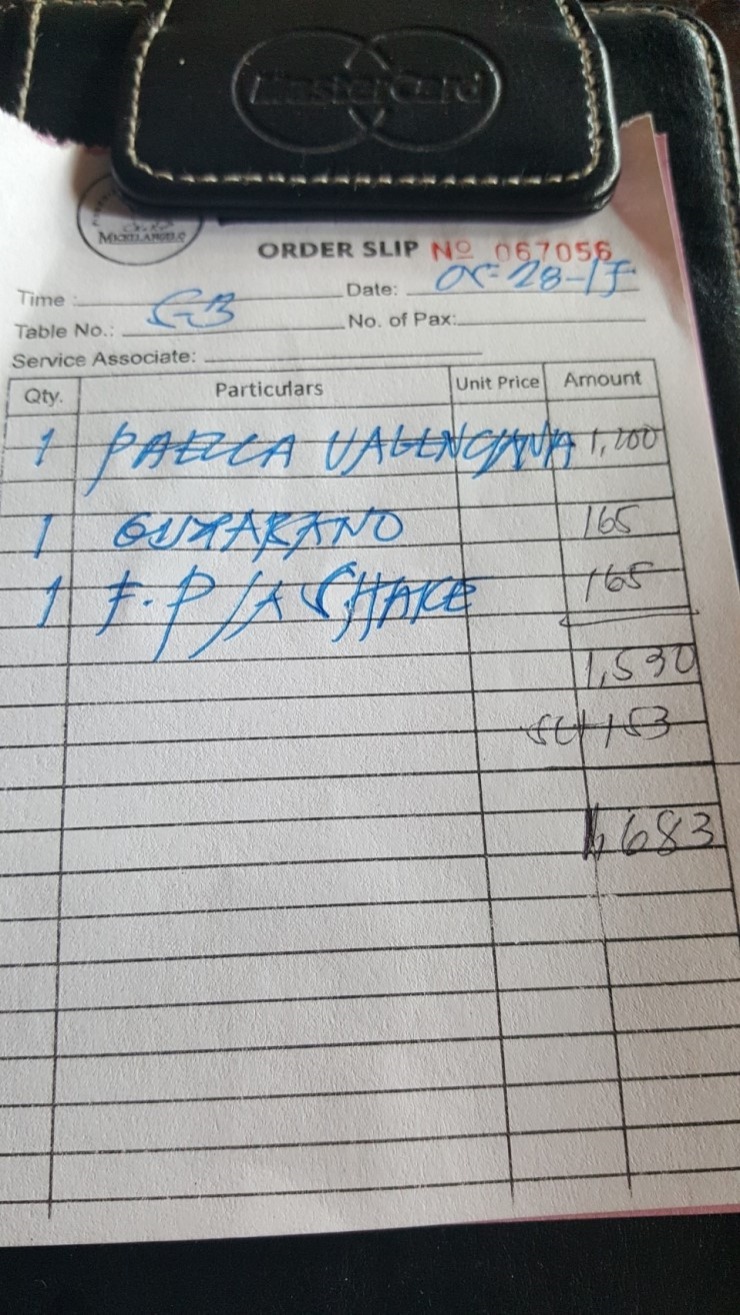 MasterCard
MICHELANGELO
ORDER SLIP Nº 067056
Time : Date:
Table No.: G3 No. of Pax:
Service Associate:
Qty. Particulars Unit Price Amount
1 PAELLA VALENCIANA 1,200
1 GUYABANO 165
1 F.P/A SHAKE 165
1,530
SC 153
1,683